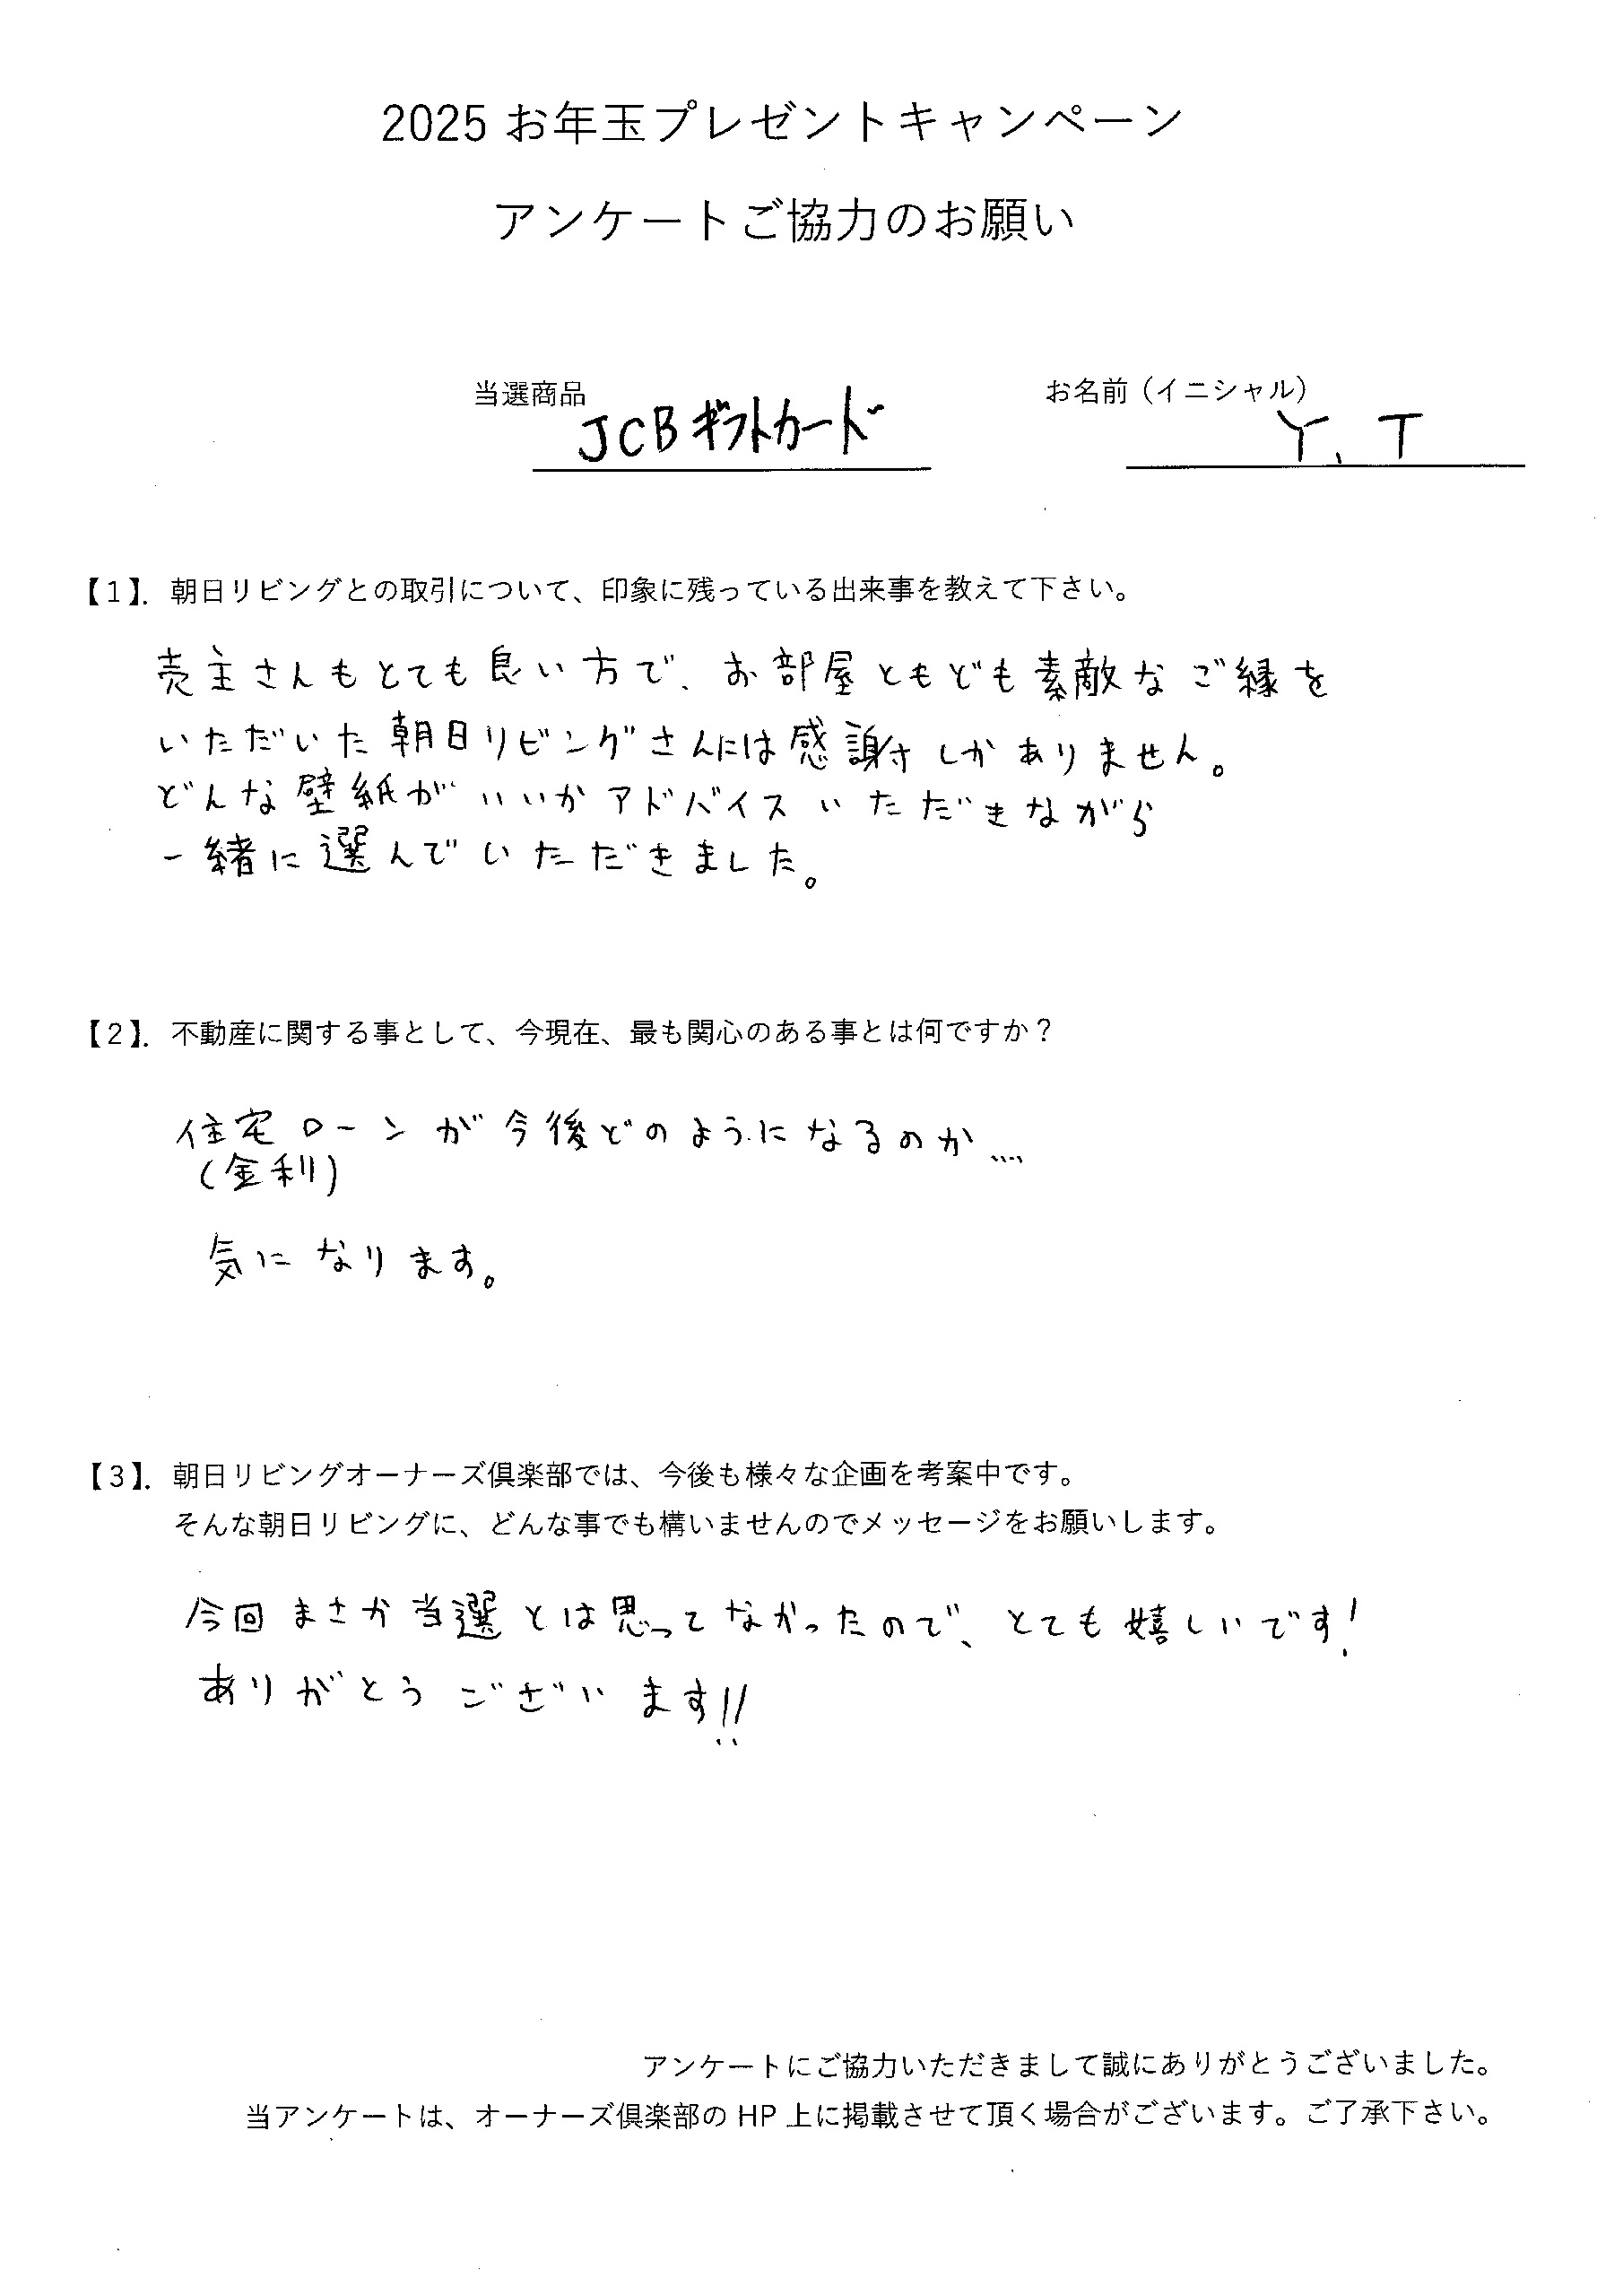 2025 お年玉プレゼントキャンペーン
アンケートご協力のお願い
当選商品 JCBギフトカード
お名前（イニシャル） Y.T
【1】. 朝日リビングとの取引について、印象に残っている出来事を教えて下さい。
売主さんもとても良い方で、お部屋ともども素敵なご縁を
いただいた朝日リビングさんには感謝さしかありません。
どんな壁紙がいいかアドバイスいただきながら
一緒に選んでいただきました。
【2】. 不動産に関する事として、今現在、最も関心のある事とは何ですか？
住宅ローンが今後どのようになるのか....
(金利)
気になります。
【3】. 朝日リビングオーナーズ倶楽部では、今後も様々な企画を考案中です。
そんな朝日リビングに、どんな事でも構いませんのでメッセージをお願いします。
今回まさか当選とは思ってなかったので、とても嬉しいです！
ありがとうございます!!
アンケートにご協力いただきまして誠にありがとうございました。
当アンケートは、オーナーズ倶楽部の HP 上に掲載させて頂く場合がございます。ご了承下さい。